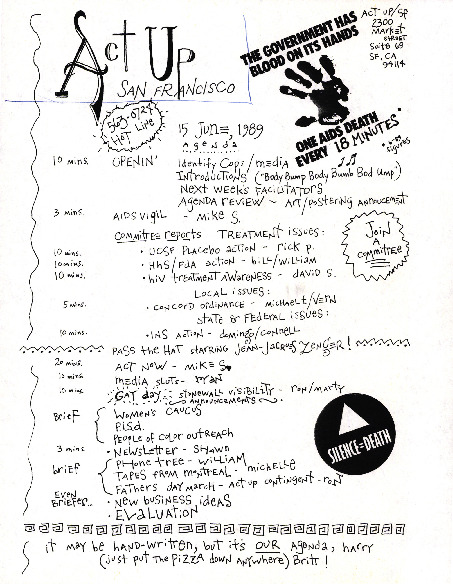 ACT UP
SAN FRANCISCO
THE GOVERNMENT HAS
BLOOD ON ITS HANDS
ONE AIDS DEATH
EVERY 18 MINUTES
ACT UP/SF
2300
MARKET
STREET
SUITE 68
SF, CA
94114
563-0724
HOT LINE
15 JUNE, 1989
agenda
10 mins. OPENIN' Identify Cops/media
Introductions ("Body Bump Body Bump Bod Ump")
Next weeks Facilitators
Agenda review ~ Art/postering Announcement
3 mins. AIDS Vigil - Mike S.
Committee reports TREATMENT ISSUES:
10 mins. • UCSF Placebo action - Rick P.
10 mins. • HHS/FDA action - Bill/William
10 mins. • HIV treatment AWARENESS - David S.
Join
A
committee
LOCAL ISSUES:
5 mins. • Concord Ordinance - Michael T/Vern
STATE & FEDERAL ISSUES:
10 mins. • INS action - Domingo/Connell
PASS THE HAT STARRING Jean-Jacques ZENGER!
20 mins. ACT NOW - Mike S.
media sluts - Ryan
GAY day - Stonewall visibility - Ron/Marty
announcements
Brief Women's Caucus
P.I.S.D.
People of Color Outreach
3 mins. • Newsletter - Shawn
Brief Phone tree - William
Tapes from Montreal - Michelle
Fathers day march - Act up contingent - Ron
Even Briefer.. • New business ideas
• Evaluation
SILENCE=DEATH
it may be hand-written, but it's OUR Agenda, Harry
(just put the pizza down anywhere) Britt!